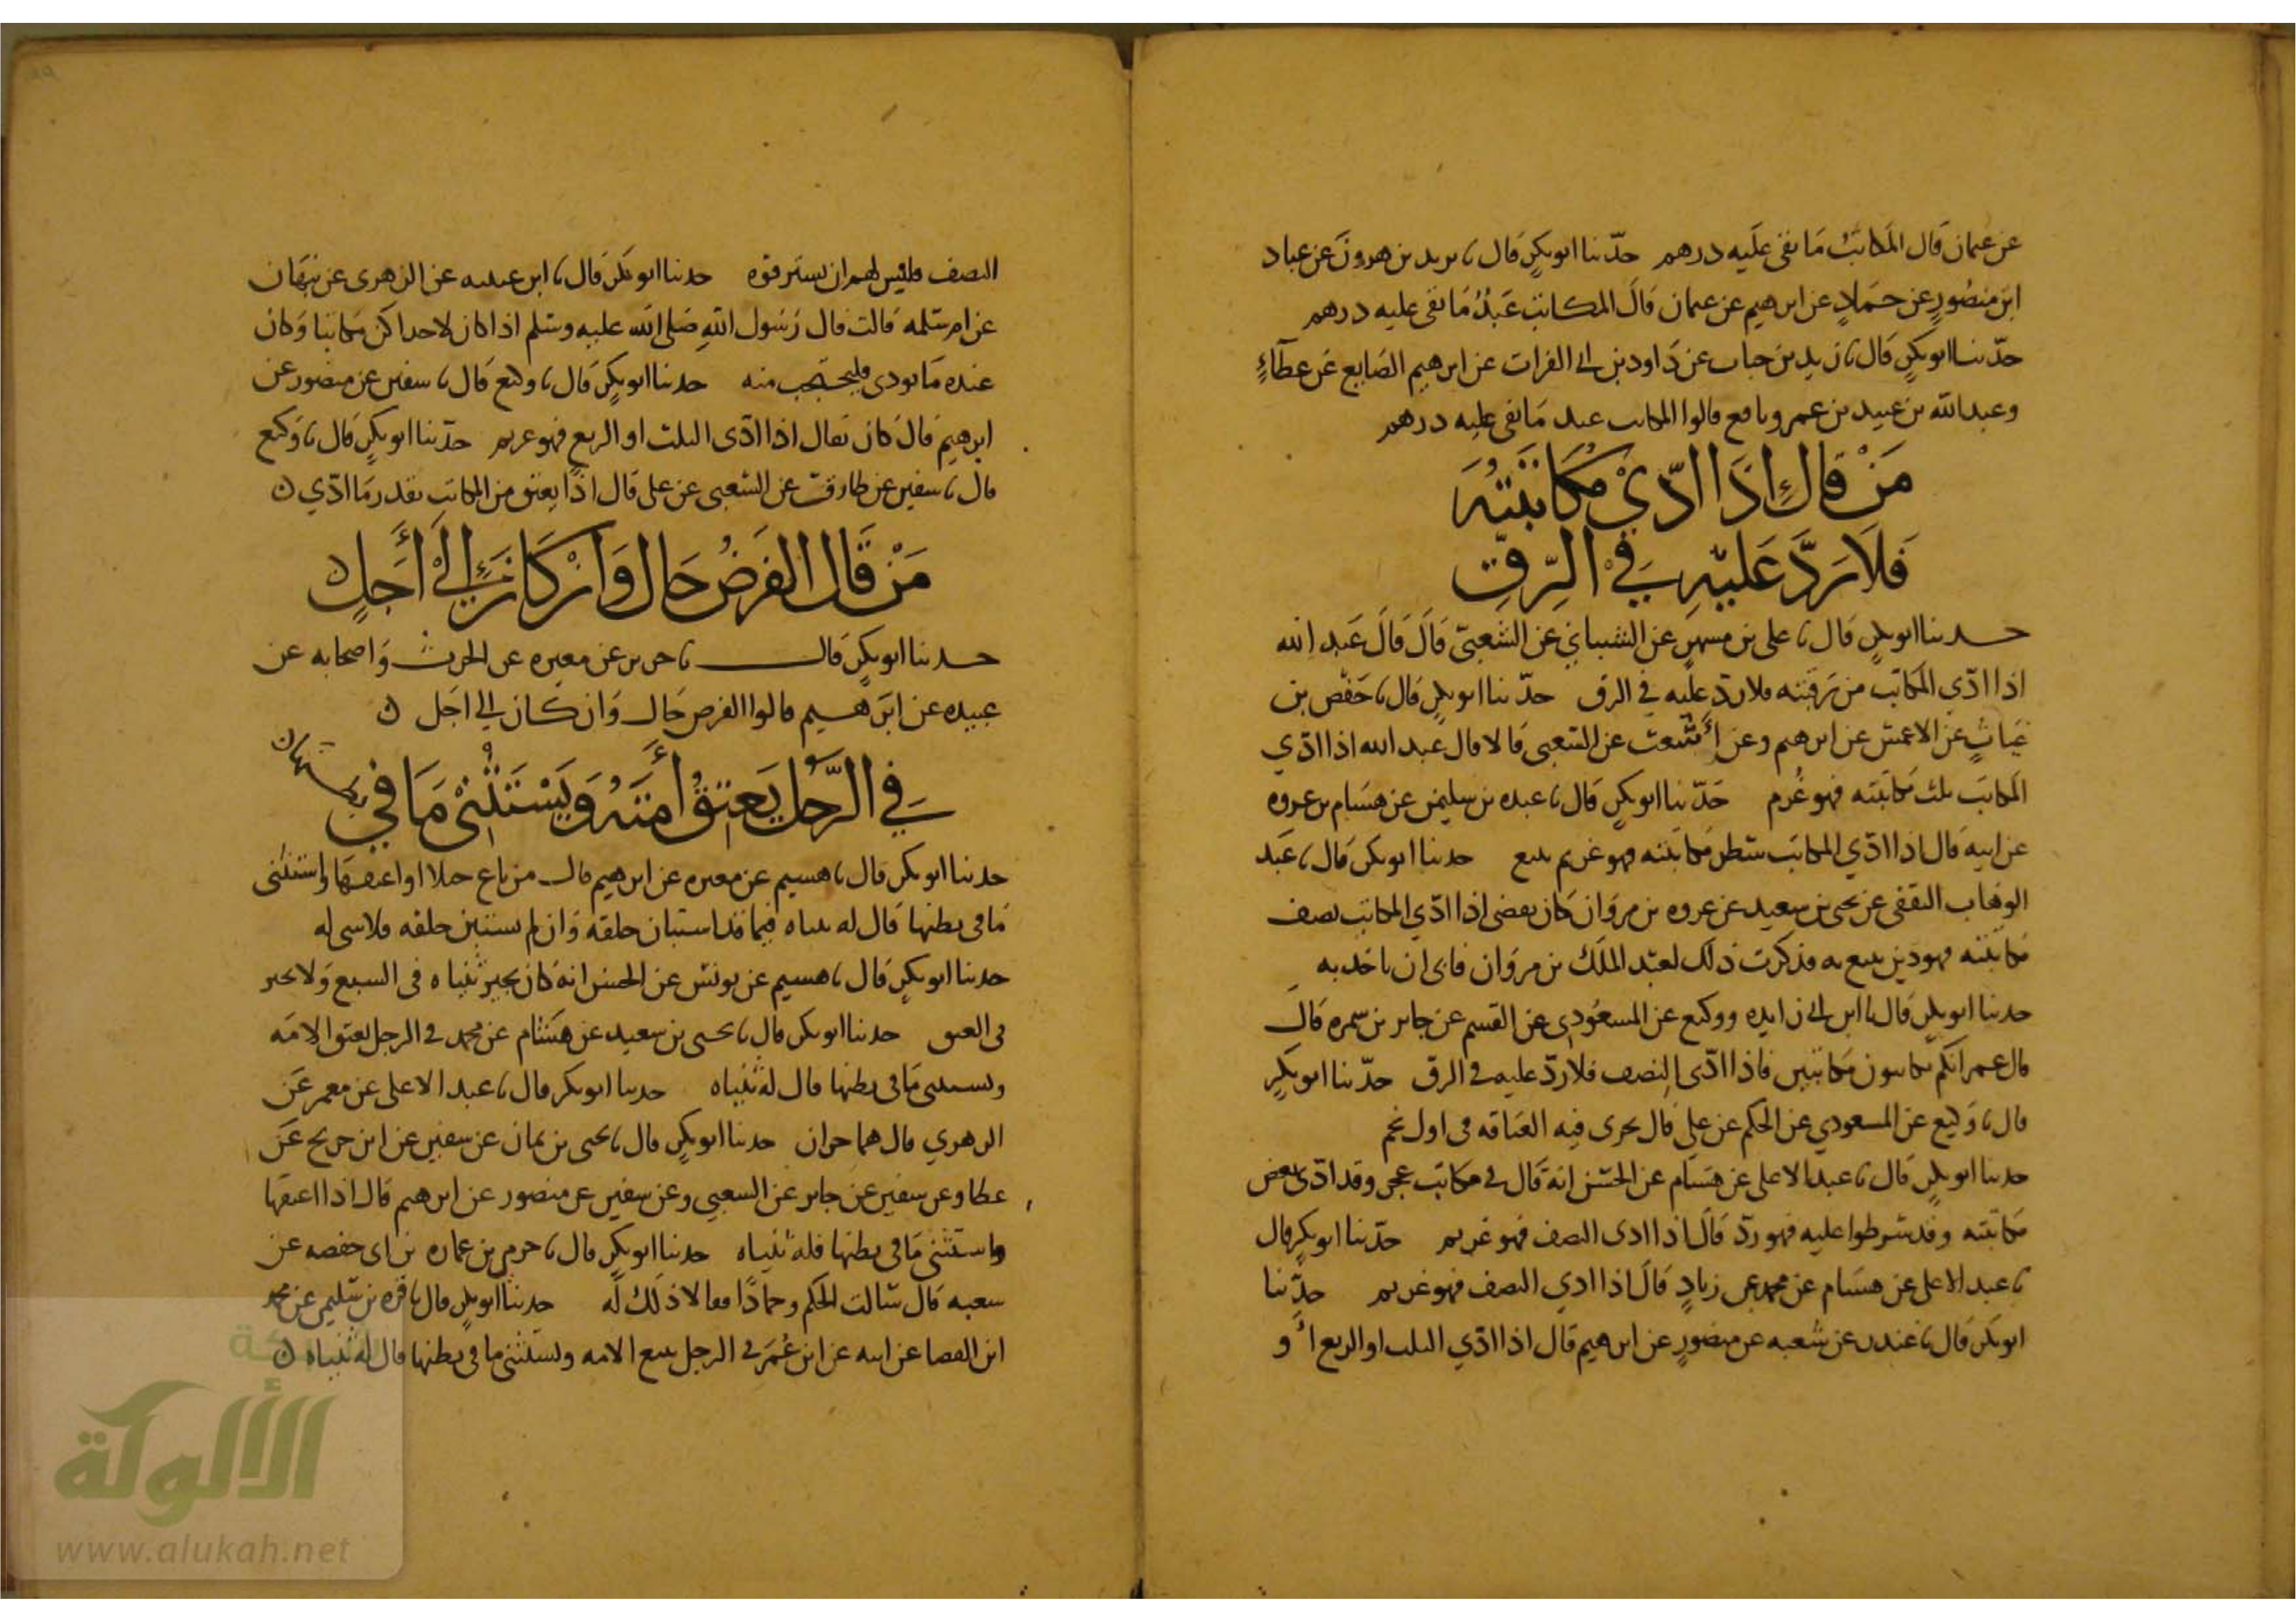 عن عثمان قال المكاتب ما بقى عليه درهم حدثنا ابو بكر قال نا يزيد بن هرون عن عباد
ابن منصور عن حماد عن ابرهيم عن عثمان قال المكاتب عبد ما بقى عليه درهم
حدثنا ابو بكر قال نا زيد بن حباب عن داود بن ابي الفرات عن ابرهيم الصايع عن عطاء
وعبد الله بن عبيد بن عمير ونافع قالوا المكاتب عبد ما بقى عليه درهم
من قال اذا ادي مكاتبته
فلا رد عليه في الرق
حدثنا ابو بكر قال نا على بن مسهر عن الشيباني عن الشعبي قال قال عبد الله
اذا ادي المكاتب من رقبته فلا رد عليه في الرق حدثنا ابو بكر قال نا حفص بن
غياث عن الاعمش عن ابرهيم وعن اشعث عن الشعبى قالا قال عبد الله اذا ادي
المكاتب ثلث مكاتبته فهو غرم حدثنا ابو بكر قال نا عبده بن سليمن عن هشام بن عروه
عن ابيه قال اذا ادي المكاتب شطر مكاتبته فهو غريم يتبع حدثنا ابو بكر قال نا عبد
الوهاب الثقفى عن يحيى بن سعيد عن عروه بن مروان كان يقضى اذا ادي المكاتب نصف
مكاتبته فهو دين يتبع به فذكرت ذلك لعبد الملك بن مروان فابى ان ياخذ به
حدثنا ابو بكر قال نا ابن ابي زايده ووكيع عن المسعودي عن القسم عن جابر بن سمره قال
قال عمر انكم تكاتبون مكاتبين فاذا ادى النصف فلا رد عليه في الرق حدثنا ابو بكر
قال نا وكيع عن المسعودي عن الحكم عن علي قال يجرى فيه العتاقه فى اول نجم
حدثنا ابو بكر قال نا عبد الاعلى عن هشام عن الحسن انه قال في مكاتب عجز وقد ادى بعض
مكاتبته وقد شرطوا عليه فهو رد قال اذا ادى النصف فهو غريم حدثنا ابو بكر قال
نا عبد الاعلى عن هشام عن محمد عن زياد قال اذا ادي النصف فهو غريم حدثنا
ابو بكر قال نا غندر عن شعبه عن منصور عن ابرهيم قال اذا ادي الثلث او الربع او
النصف فليس لهم ان يسترقوه حدثنا ابو بكر قال نا ابن عيينه عن الزهرى عن نبهان
عن ام سلمه قالت قال رسول الله صلى الله عليه وسلم اذا كان لاحداكن مكاتبا وكان
عنده ما يودى فليحتجب منه حدثنا ابو بكر قال نا وكيع قال نا سفين عن منصور عن
ابرهيم قال كان يقال اذا ادى الثلث او الربع فهو غريم حدثنا ابو بكر قال نا وكيع
قال نا سفين عن طارق عن الشعبى عن على قال اذا يعتق من المكاتب بقدر ما ادي
من قال القرض حال وان كان الي اجل
حدثنا ابو بكر قال نا جرير عن مغيره عن الحرث واصحابه عن
عبيده عن ابرهيم قالوا القرض حال وان كان الي اجل
في الرجل يعتق امته ويستثنى ما في بطنها
حدثنا ابو بكر قال نا هشيم عن مغيره عن ابرهيم قال من باع حبلا او اعتقها واستثنى
ما فى بطنها قال له ثنياه فيما قد استبان خلقه وان لم يستبين خلقه فلا شى له
حدثنا ابو بكر قال نا هشيم عن يونس عن الحسن انه كان يجيز ثنياه فى البيع ولا يجيز
فى العتق حدثنا ابو بكر قال نا يحيى بن سعيد عن هشام عن محمد في الرجل يعتق الامه
ويستثنى ما فى بطنها قال له ثنياه حدثنا ابو بكر قال نا عبد الاعلى عن معمر عن
الزهري قال هما حران حدثنا ابو بكر قال نا يحيى بن يمان عن سفين عن ابن جريج عن
عطا وعن سفين عن جابر عن الشعبي وعن سفين عن منصور عن ابرهيم قال اذا اعتقها
واستثنى ما فى بطنها فله ثنياه حدثنا ابو بكر قال نا حرمي بن عماره بن ابى حفصه عن
شعبه قال سالت الحكم وحمادا فقالا ذلك له حدثنا ابو بكر قال نا قره بن سليمن عن محمد
ابن الفضا عن ابيه عن ابن عمر في الرجل يبيع الامه ويستثنى ما في بطنها قال له ثنياه
الألوكة
www.alukah.net